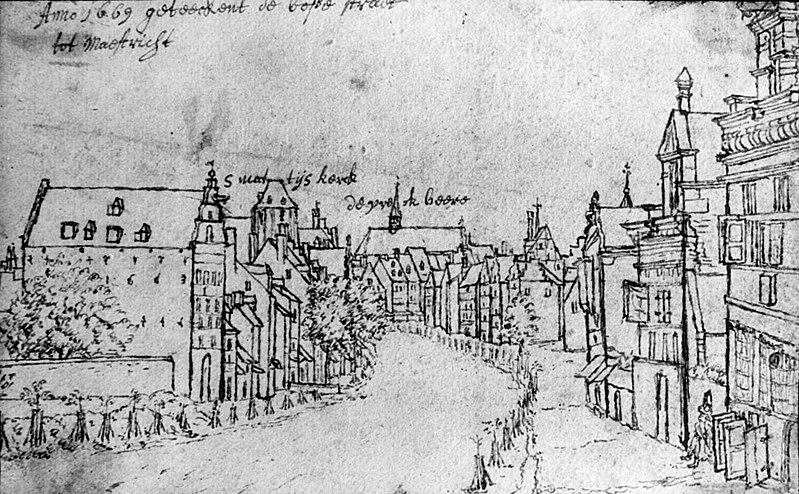 Anno 1669 geteeckent de bosse straet
tot Maestricht
S mattijs kerck
de preck heere